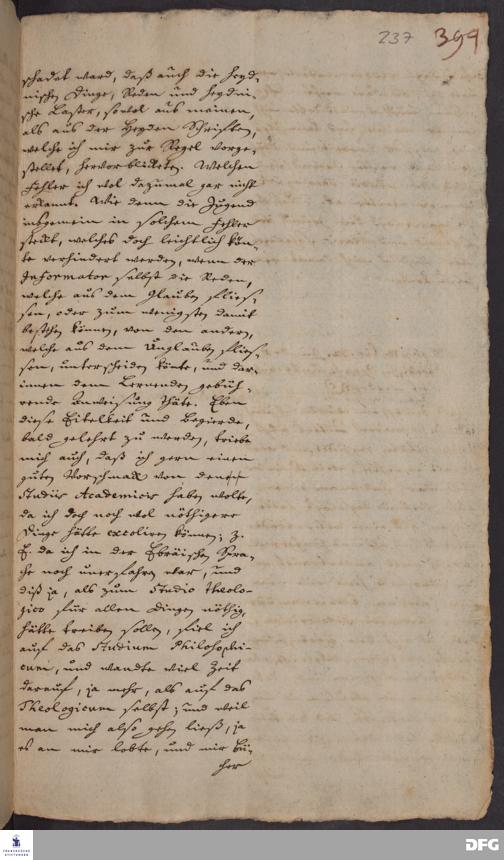 237 399
schadet ward, daß auch die heyd-
nischen Dinge, Reden und heydni-
sche Laster, sowol aus meinen,
als aus der Heyden Schrifften,
welche ich mir zur Regel vorge-
stellet, hervorblickten. Welchen
Fehler ich wol dazumal gar nicht
erkannte. Wie denn die Jugend
insgemein in solchem Fehler
steckt, welches doch leichtlich kön-
te verhindert werden, wenn der
Informator selbst die Reden,
welche aus dem Glauben flies-
sen, oder zum wenigsten damit
bestehen können, von den andern,
welche aus dem Unglauben flies-
sen, unterscheiden könte, und dar-
innen dem Lernenden gebüh-
rende Anweisung thäte. Eben
diese Eitelkeit und Begierde,
bald gelehrt zu werden, triebe
mich auch, daß ich gern einen
guten Vorschmack von den
Studiis Academicis haben wolte,
da ich doch noch wol nöthigere
Dinge hätte excoliren können; z.
E. da ich in der Ebräischen Spra-
che noch unerfahren war, und
diß ja, als zum Studio Theolo-
gico für allen Dingen nöthig,
hätte treiben sollen, fiel ich
auf das Studium Philosophi-
cum, und wandte viel Zeit
darauf, ja mehr, als auf das
Theologicum selbst; und weil
man mich also gehen ließ, ja
es an mir lobte, und mir Bü-
cher
FRANCKESCHE STIFTUNGEN
DFG